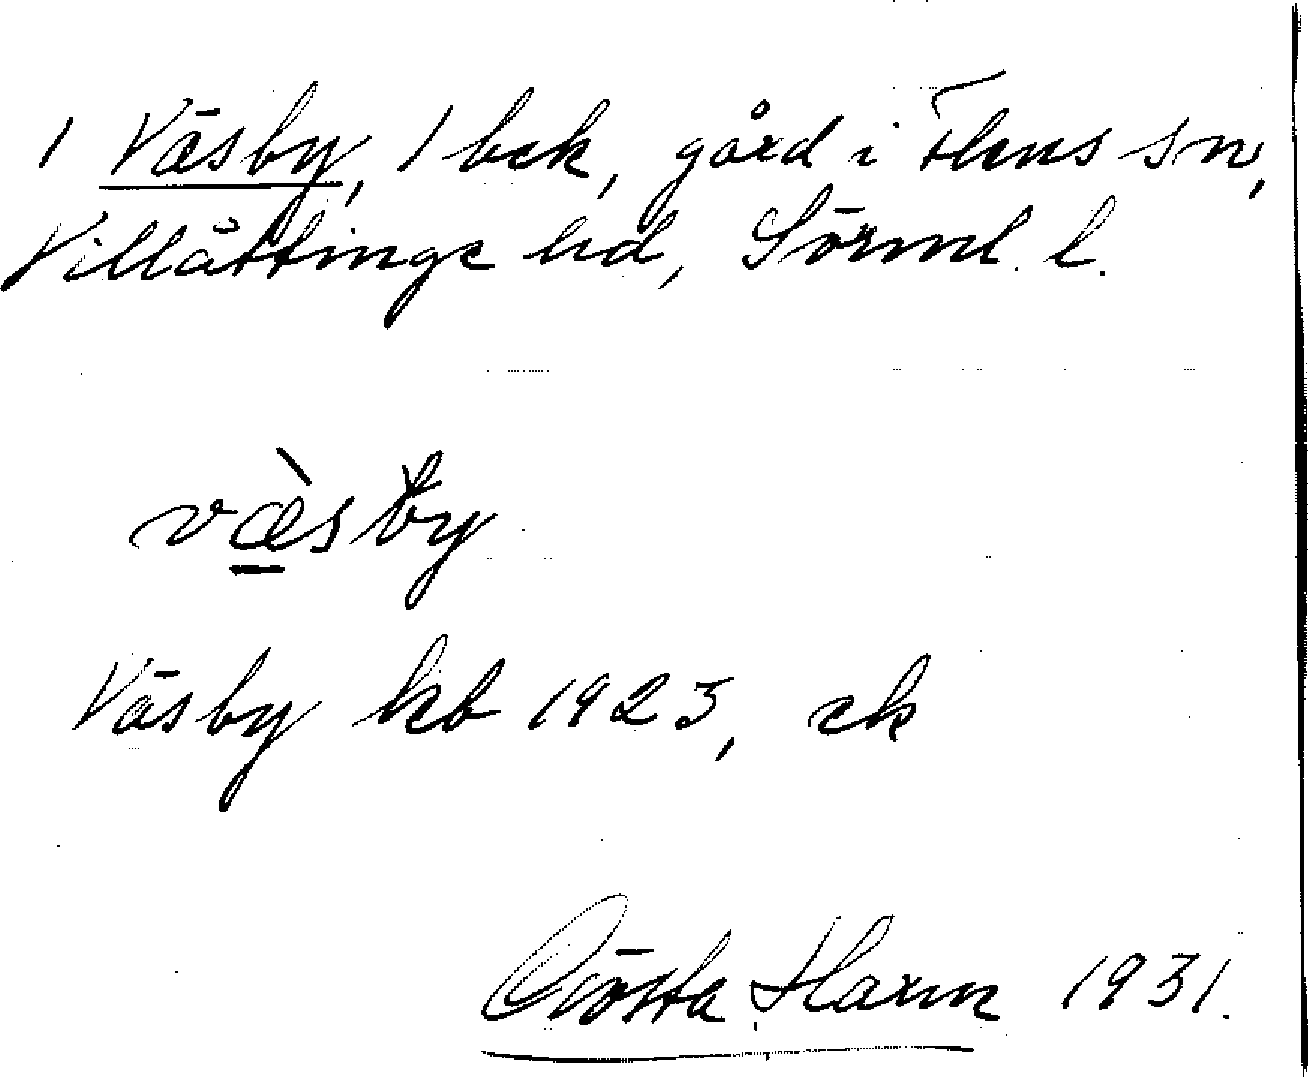 1 Väsby, 1 bek, gård i Flens sn,
Villåttinge hd, Sörml. l.
væ̀sby
Väsby kb 1923, ek
Gösta Harm 1931.